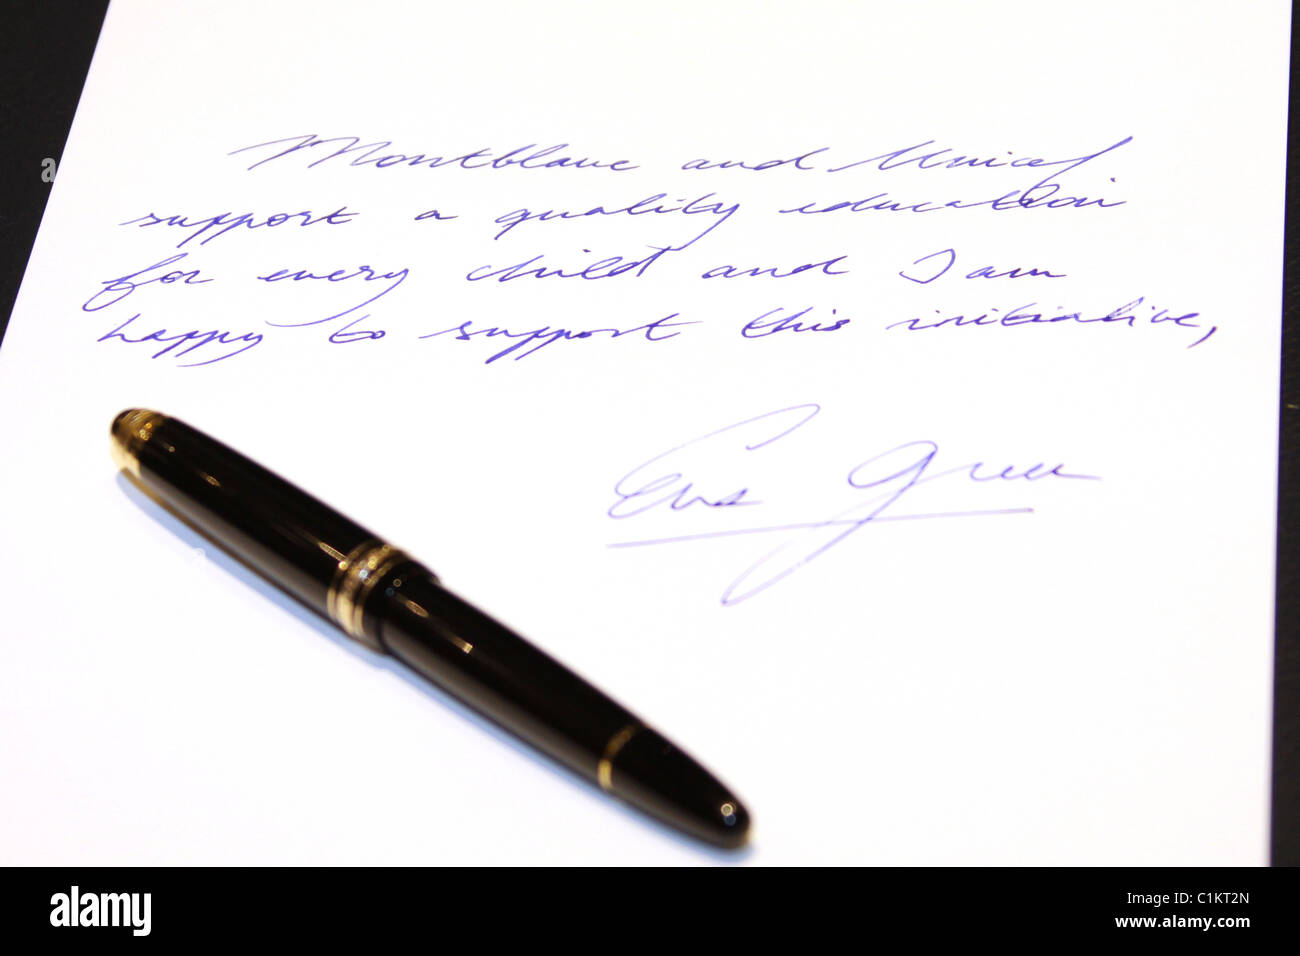 Montblanc and Unicef
support a quality education
for every child and I am
happy to support this initiative,
Eva Green
a
alamy
Image ID: C1KT2N
www.alamy.com